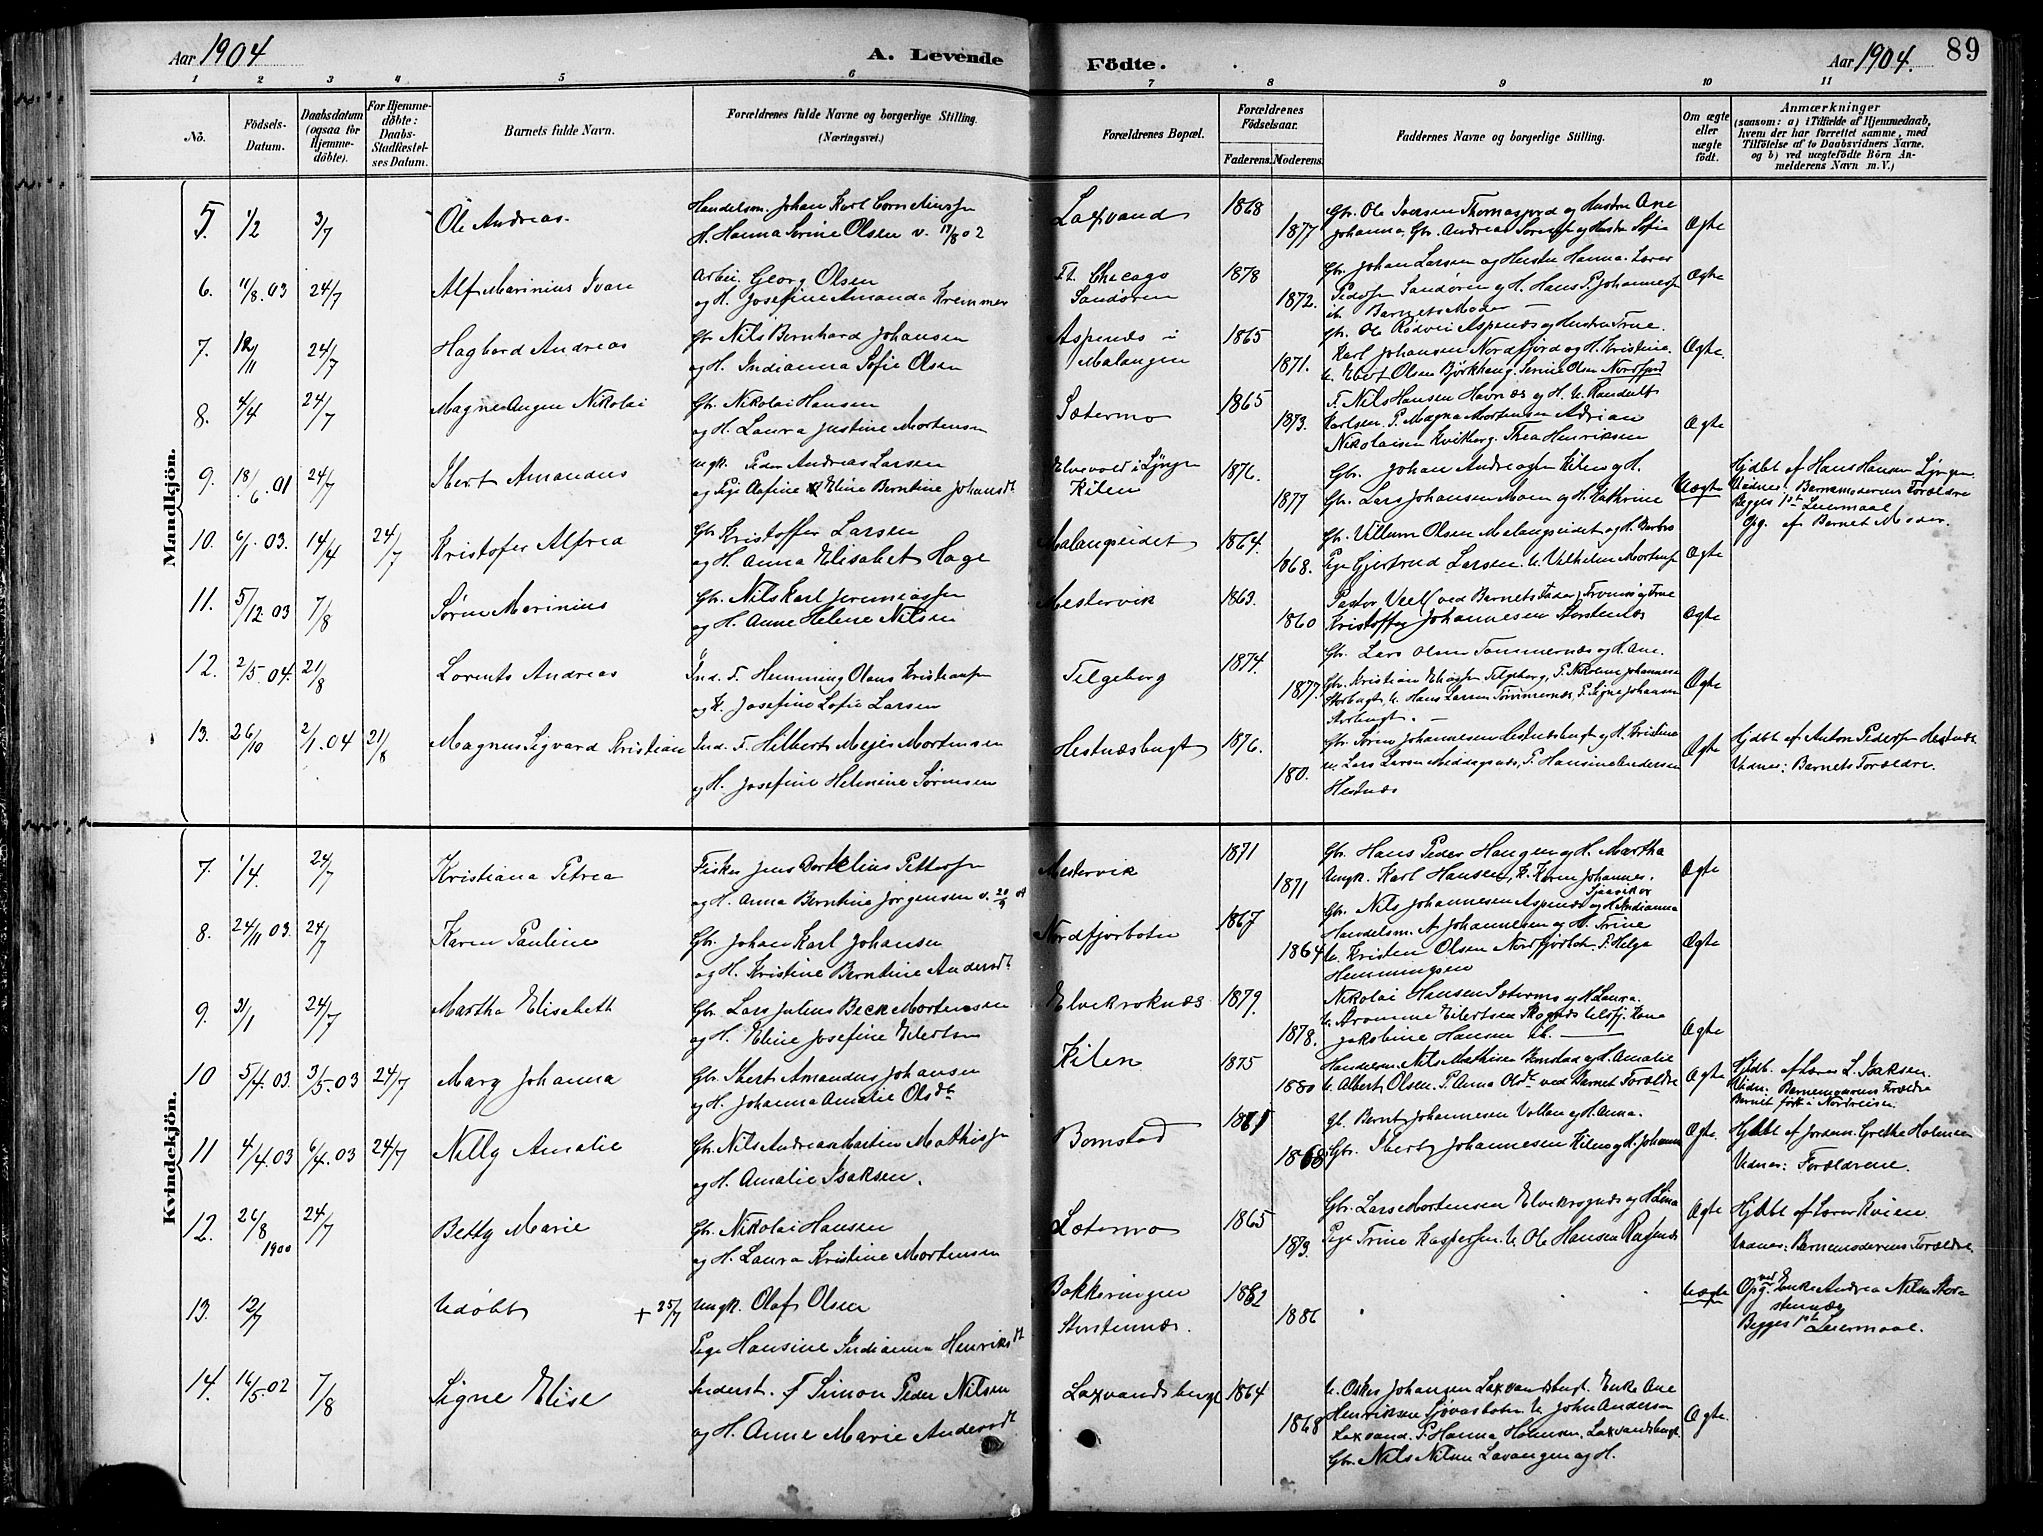 Aar 1904
A. Levende
Födte.
Aar 1904.
89
1 2 3 4 5 6 7 8 9 10 11
No.
Födsels-Datum.
Daabsdatum (ogsaa for Hjemme-døbte).
For Hjemme-døbte: Daabs-Stadfæstel-ses Datum.
Barnets fulde Navn.
Forældrenes fulde Navne og borgerlige Stilling.
(Næringsvei.)
Forældrenes Bopæl.
Forældrenes Födselsaar.
Faderens. Moderens.
Faddernes Navne og borgerlige Stilling.
Om ægte eller uægte født.
Anmærkninger
(saasom: a) i Tilfælde af Hjemmedaab,
hvem der har forrettet samme, med
Tilføielse af to Daabsvidners Navne.
og b) ved uægtefødte Börn An-
melderens Navn m. V.)
Mandkjön.
5. 1/2 3/7 Ole Andreas. Handelsm. Johan Karl
H. Hanna Serine Olsen v. 18/8 02
Laxvand 1868 1877 Ægte
Johanna, Gbr. Andreas og Hustru Sofie
6. 11/8. 03 24/7 Alf Marinius Ivan Arbei. Georg Olsen
og H. Josefine Amanda Kremmer
Chicago
Sandøren 1878 1872. Ægte
Gbr. Johan Larsen og Hustru Hanna. Lærer
Barnets Moder
7. 24/7 Hagbard Andreas Gbr. Nils Bernhard Johansen
og H. Indianna Sofie Olsen
Aspenæs i
Malangen 1865 1871. Ægte.
Karl Johansen Nordfjord og H. Kristine.
U. Ebert Olsen Björkhaug. Serine Olsen Nordfjord
8. 4/4 24/7 Magne Nikolai Gbr. Nikolai Hansen
og H. Laura Justine Mortensen
Sætermo 1865 1873. Ægte
F. Nils Hansen Havnæs og H. U. Randulf
Karlsen. P. Magna Mortensen Adrian
Nikolaisen Kvitberg. Thea Henriksen
9. 18/6. 01 24/7 Ibert Amandus Ungk. Peder Andreas Larsen
og Pige Eline Berntine Johansdt
Elvevold i Lyngen
Kilen 1876. 1877 Uægte
Gbr. Johan Andreassen Kilen og H.
Gbr. Lars Johansen Moen og H. Kathrine
Hjdbt af Hans Hansen Lyngen
Vidner: Barnemoderens Forældre
Begges 1st Leiermaal
Opg. af Barnets Moder.
10. 6/1. 03. 14/4 24/7 Kristofer Alfred Gbr. Kristoffer Larsen
og H. Anna Elisabet Hage
Malangseidet 1864. 1868. Ægte
Gbr. Villum Olsen Malangseidet og H. Barbro
Pige Gjertrud Larsen. U. Vilhelm Mortensen
11. 5/12 03 7/8 Søren Marinius Gbr. Nils Karl Jeremiassen
og H. Anne Helene Nilsen
Mestervik 1863. 1860 Ægte
Kristoffer Johannesen Storstennæs
12. 2/5. 04. 21/8 Lorents Andreas Ind. F. Hemming Olaus Kristiansen
og H. Josefine Sofie Larsen
Telgeborg 1874. 1877. Ægte
Gbr. Lars Olsen Tømmernæs og H. Ane.
Storbugt, U. Hans Larsen Tømmernæs, P. Signe Johansen
Storbugt. —
13. 26/10 2/1. 04 21/8 Magnus Sigvard Kristian Ind. F. Hilbert Mejer Mortensen
og H. Josefine Helmine Sørensen
Hestnæsbugt 1876. 180. Ægte
Gbr. Søren Johannesen Hestnæsbugt og H. Kristine
U. Lars Larsen Middagsnæs, P. Hansine Andersen
Hestnæs
Hjdbt af Anton Pedersen Hestnæs.
Vidner: Barnets Forældre.
Kvindekjön.
7. 1/4. 24/7 Kristiana Petrea Fisker Jens Cornelius Pettersen
og H. Anna Berntine Jørgensen v.
Mestervik 1871 1871 Ægte
Gbr. Hans Peder Haugen og H. Martha
Ungk. Karl Hansen, K. Karen Johannes.
8. 24/11 03. 24/7 Karen Pauline Gbr. Johan Karl Johansen
og H. Kristine Berntine Andersdt.
Nordfjorboten 1867 1864 Ægte
Gbr. Nils Johannesen Aspenæs og H. Indianna
Handelsm. A. Johannesen og H. Trine
U. Kristen Olsen Nordfjordbotn. P. Helga
Hemmingsen
9. 31/1 24/7 Martha Elisabeth Gbr. Lars Julius Beck Mortensen
og H. Eline Josefine Eilertsen
Elvekroknæs 1879. 1878. Ægte
Nikolai Hansen Sætermo og H. Laura.
Jakobine Hansen
10 5/4. 03. 3/5. 03 24/7 Mary Johanna Gbr. Ibert Amandus Johansen
og H. Johanna Amalie Olsdt
Kilen 1875 1880 Ægte
Handelsm. Nils Mathisen Bomstad og H. Amalie
U. Albert Olsen. P. Anna Olsdt ved Barnets Forældre
Hjdbt. af Lærer L. Isaksen.
Vidn: Barnemoderens Forældre
Barnet født i Nordreisen.
11 4/4. 03 6/4. 03 24/7 Nelly Amalie Gbr. Nils Andreas Martin Mathisen
og H. Amalie Isaksen.
Bomstad 1868 Ægte.
Gl. Bernt Johannesen Vollan og H. Anna.
Gbr. Ibert Johannesen Kilen og H. Johanna
Hjdbt af Jordm. Grethe Holmsen
Vidner: Forældrene.
12. 26/8 1900 24/7 Betty Marie Gbr. Nikolai Hansen
og H. Laura Kristine Mortensen
Sætermo 1865 1873. Ægte
Gbr. Lars Mortensen Elvekroknæs og H. Lina
Pige Trine Kaspersen. U. Ole Hansen
Hjdbt af Lærer Kvien.
Vidner: Barnemoderens Forældre.
13. 12/7 Udøbt + 25/7 Ungk. Olaf Olsen
Pige Hansine Indianna Henriksdt
Bakkeningen
Storstennæs. 1882 1886 Uægte
Opg. ved Enke Andrea Nilsen Stor-
stennæs
Begges 1st Leiermaal.
14. 16/5. 02 7/8 Signe Elise Inderst. F Simon Peder Nilsen
og H. Anne Marie Andersdt
Laxvandsbugt 1864 1868 Ægte.
U. Oskar Johansen Laxvandsbugt. Enke Ane
Henriksen Sjøvasboten. U. John Andersen
Laxvand. P. Hanna Holmsen, Laxvandsbugt.
Gbr. Nils Nilsen Lavangen og H.